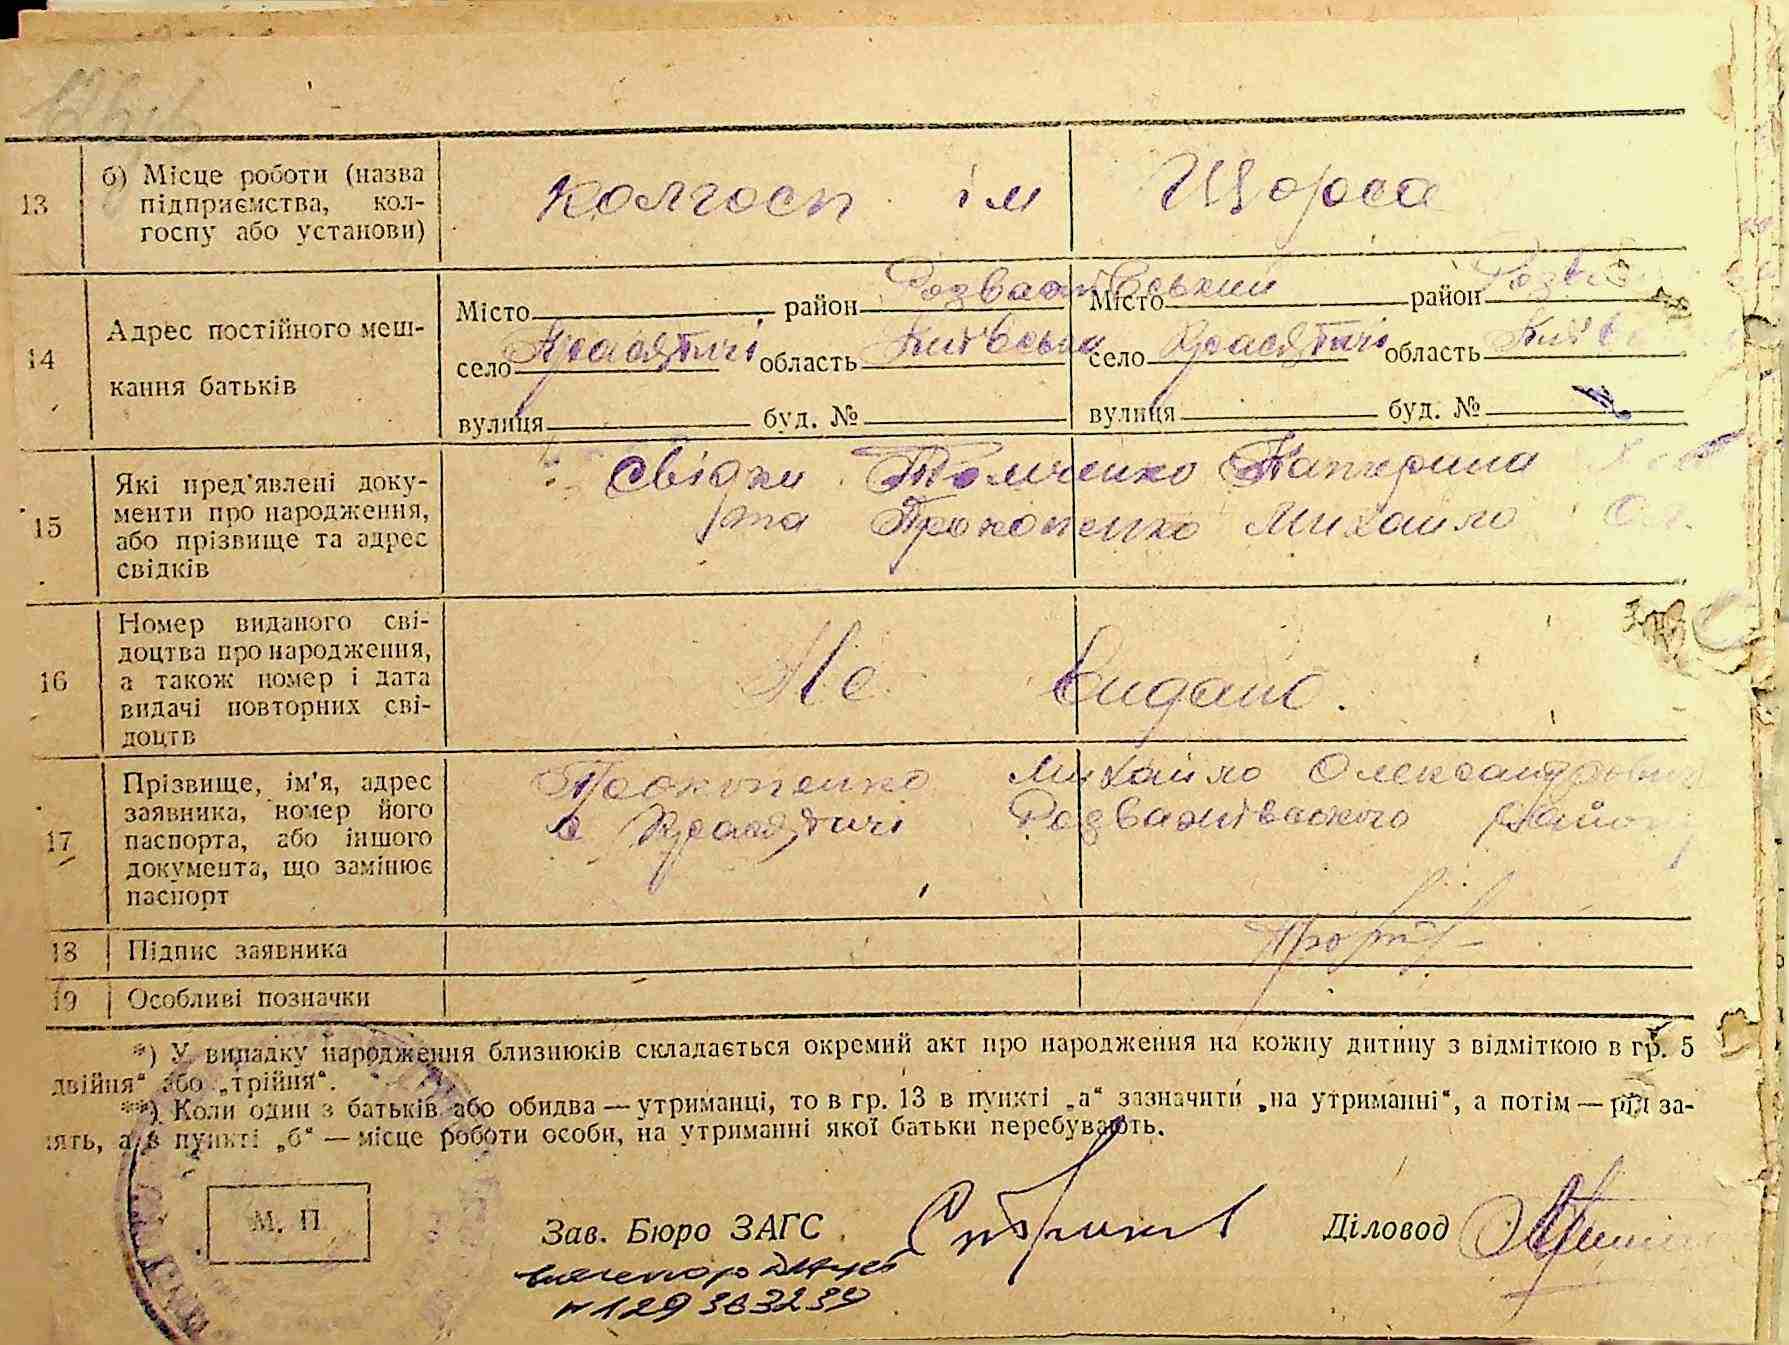 13 б) Місце роботи (назва
підприємства, кол-
госпу або установи)
колгосп ім Щорса
14 Адрес постійного меш-
кання батьків
Місто район Розважівський Місто район
село Красятичі область Київська село Красятичі область Київ
вулиця буд. № вулиця буд. №
15 Які пред'явлені доку-
менти про народження,
або прізвище та адрес
свідків
Свідки Толченко Катерина
та Прокопенко Михайло Ол.
16 Номер виданого сві-
доцтва про народження,
а також номер і дата
видачі повторних сві-
доцтв
Не видано.
17 Прізвище, ім'я, адрес
заявника, номер його
паспорта, або іншого
документа, що замінює
паспорт
Прокопенко Михайло Олександрович
с Красятичі Розважівського району
18 Підпис заявника
19 Особливі позначки
*) У випадку народження близнюків складається окремий акт про народження на кожну дитину з відміткою в гр. 5
двійня“ або „трійня“.
**) Коли один з батьків або обидва — утриманці, то в гр. 13 в пункті „а“ зазначити „на утриманні“, а потім — рід за-
нять, а в пункті „б“ — місце роботи особи, на утриманні якої батьки перебувають.
М. П.
Зав. Бюро ЗАГС Діловод
№ 129383239